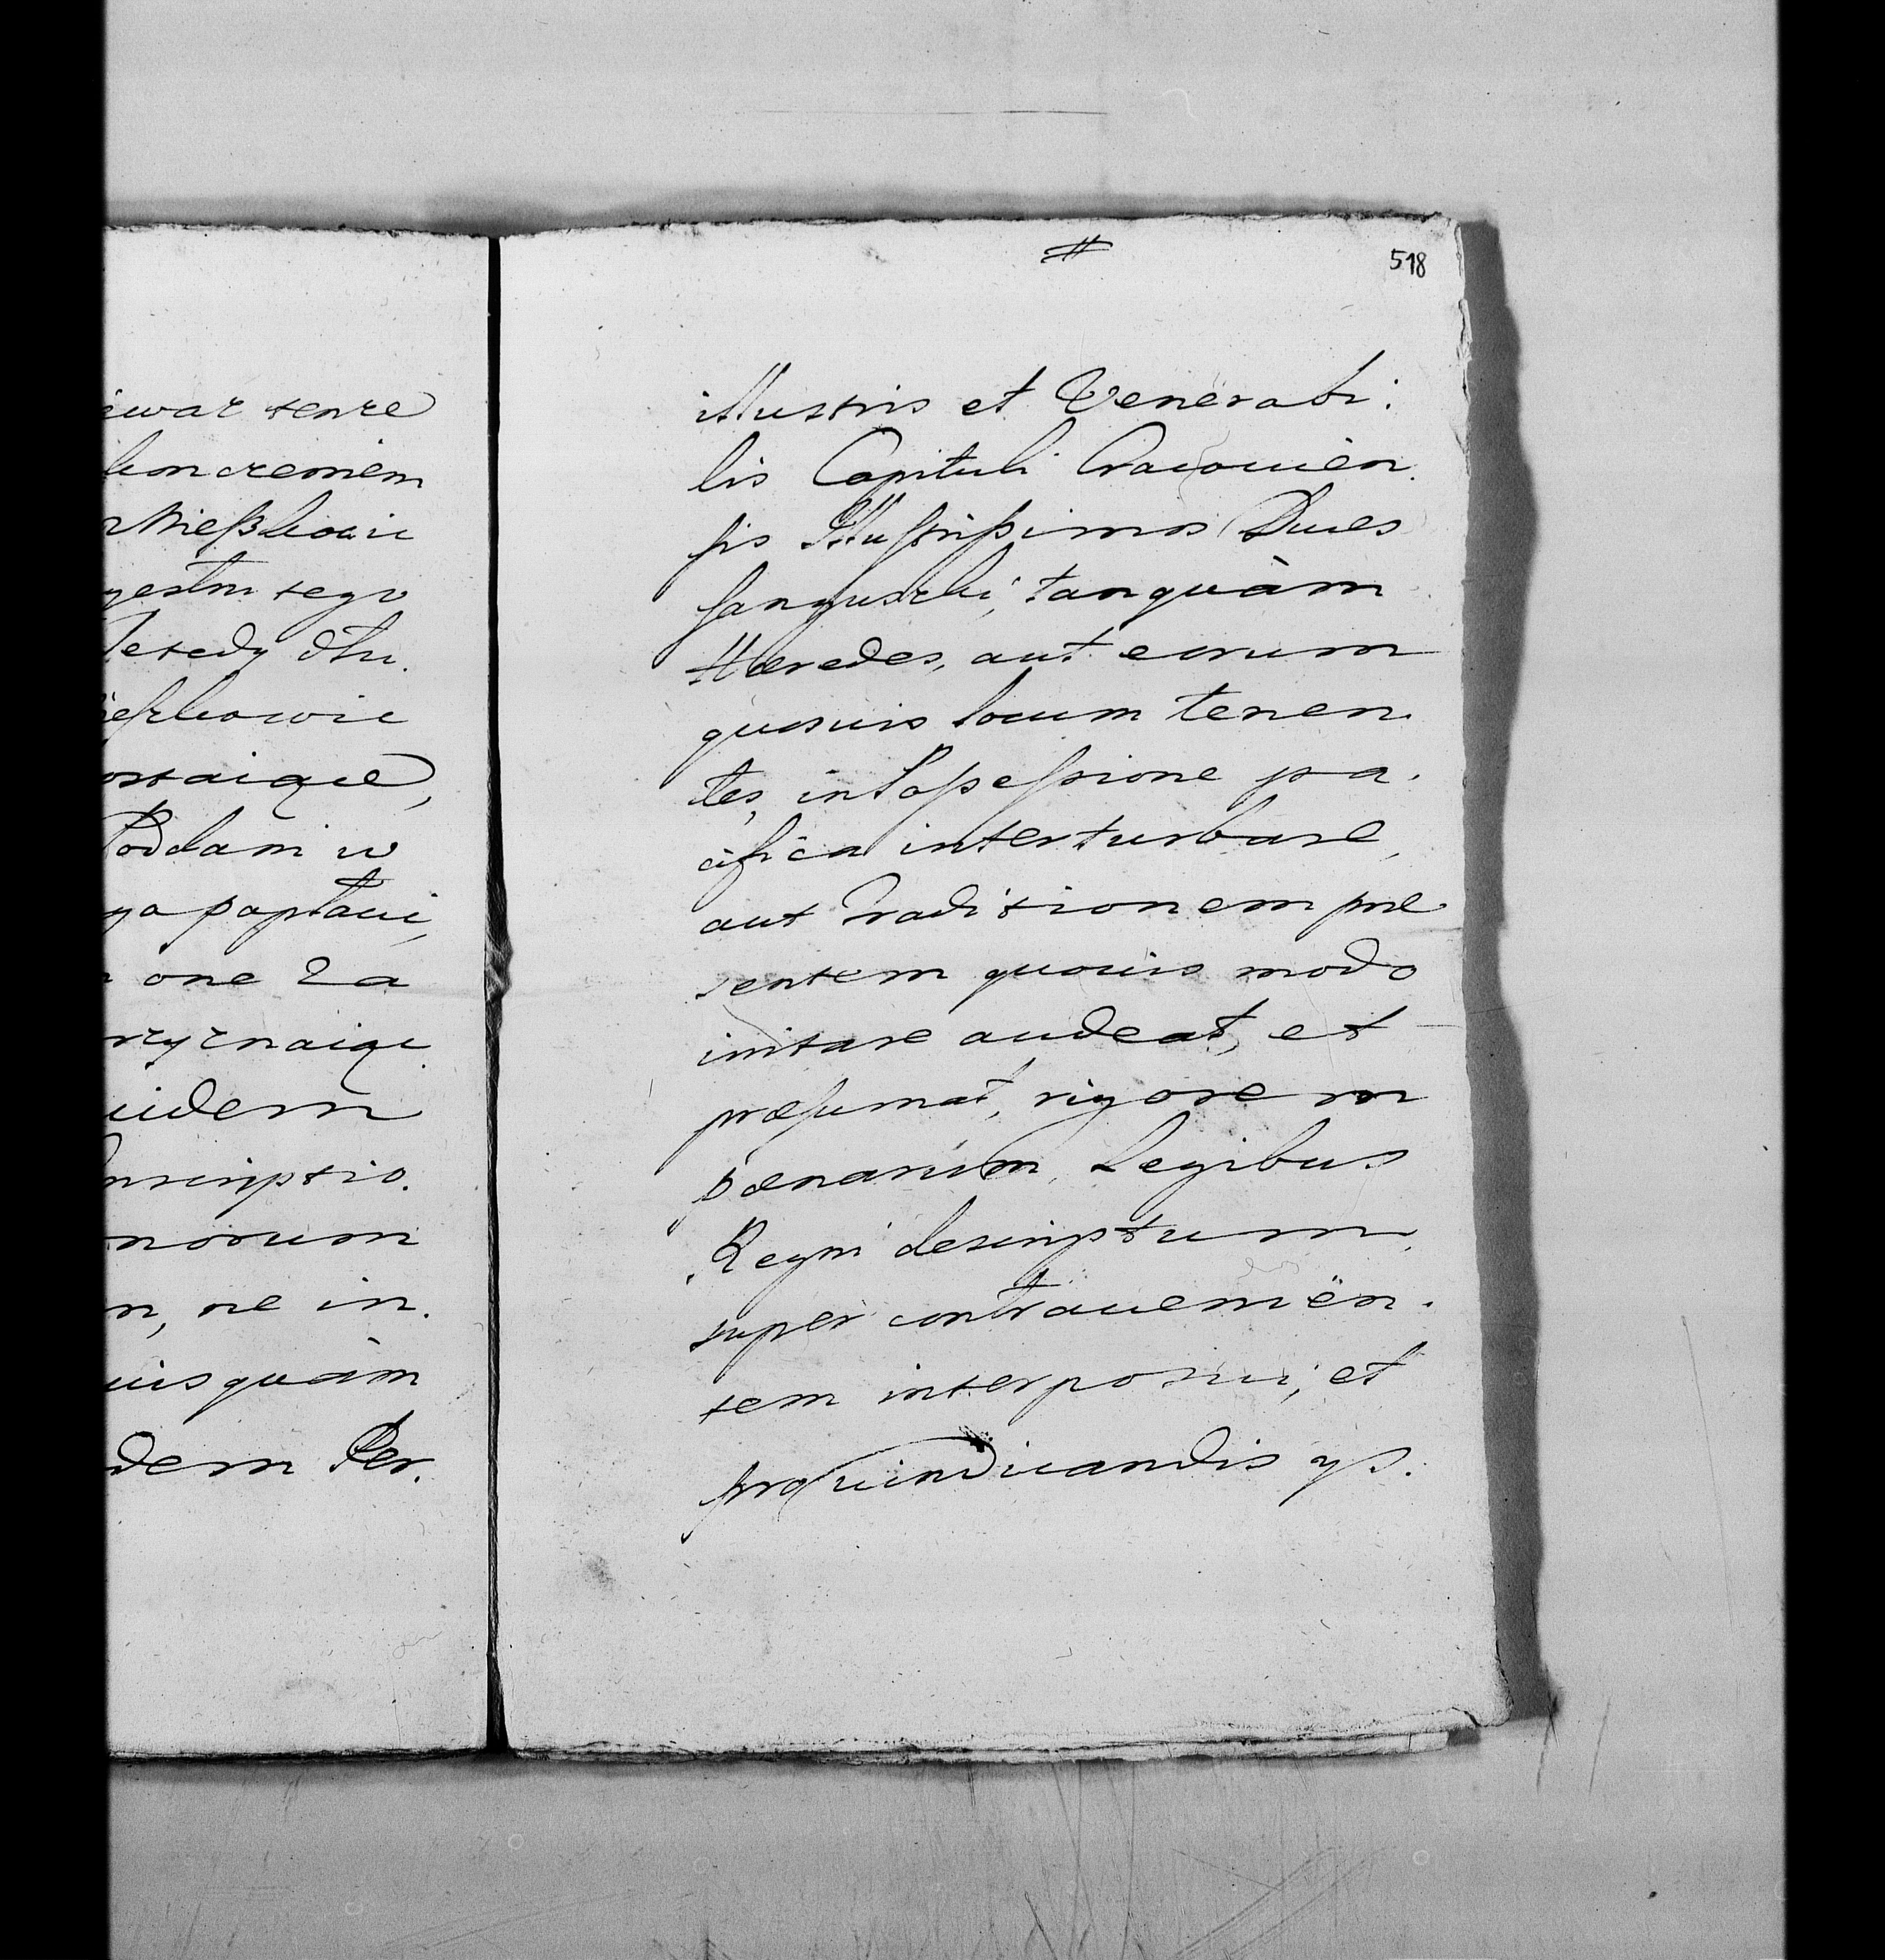 iewac tenze
konczeniem
Mießkowic
gestm tego
Jesedy dłu.
ießkowic
ostaiące,
Poddani w
ya poptaui,
one Za
rzyznaiąc
uidem
Inscriptio.
norum
n, ne in.
uisquàm
dem Per.
#
518
illustris et Venerabi.
lis Capituli Cracouien.
sis Illustrissimos Duces
Sanguszki, tanquàm
Hæredes, aut eorum
quosuis locum tenen.
tes, in Possessione pa.
cifica interturbare,
aut Traditionem præ
sentem quouis modo
irritare audeat, et
præsumat, rigorem
pænarum, Legibus
Regni descriptum,
super contrauenien.
tem interposui; et
pro uindicandis ys.